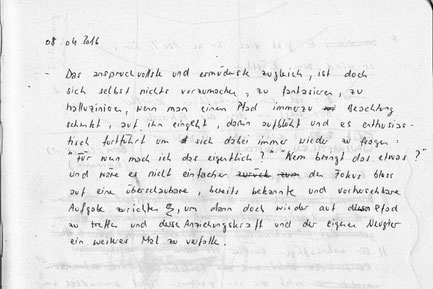 08.04.2016
- Das anspruchvollste und ermüdenste zugleich, ist doch
sich selbst nichts vorzumachen, zu fantasieren, zu
halluzinieren, wenn man einen Pfad immerzu Beachtung
schenkt, auf ihn eingeht, darin aufblüht und es enthusias-
tisch fortführt um sich dabei immer wieder zu fragen:
"Für wen mach ich das eigentlich?" "Wem bringt das etwas?"
und wäre es nicht einfacher zurück zum den Fokus bloss
auf eine überschaubare, bereits bekannte und vorhersehbare
Aufgabe zurichten, um dann doch wieder auf diesen Pfad
zu treffen und dessen Anziehungskraft und der eigenen Neugier
ein weiteres Mal zu verfallen.